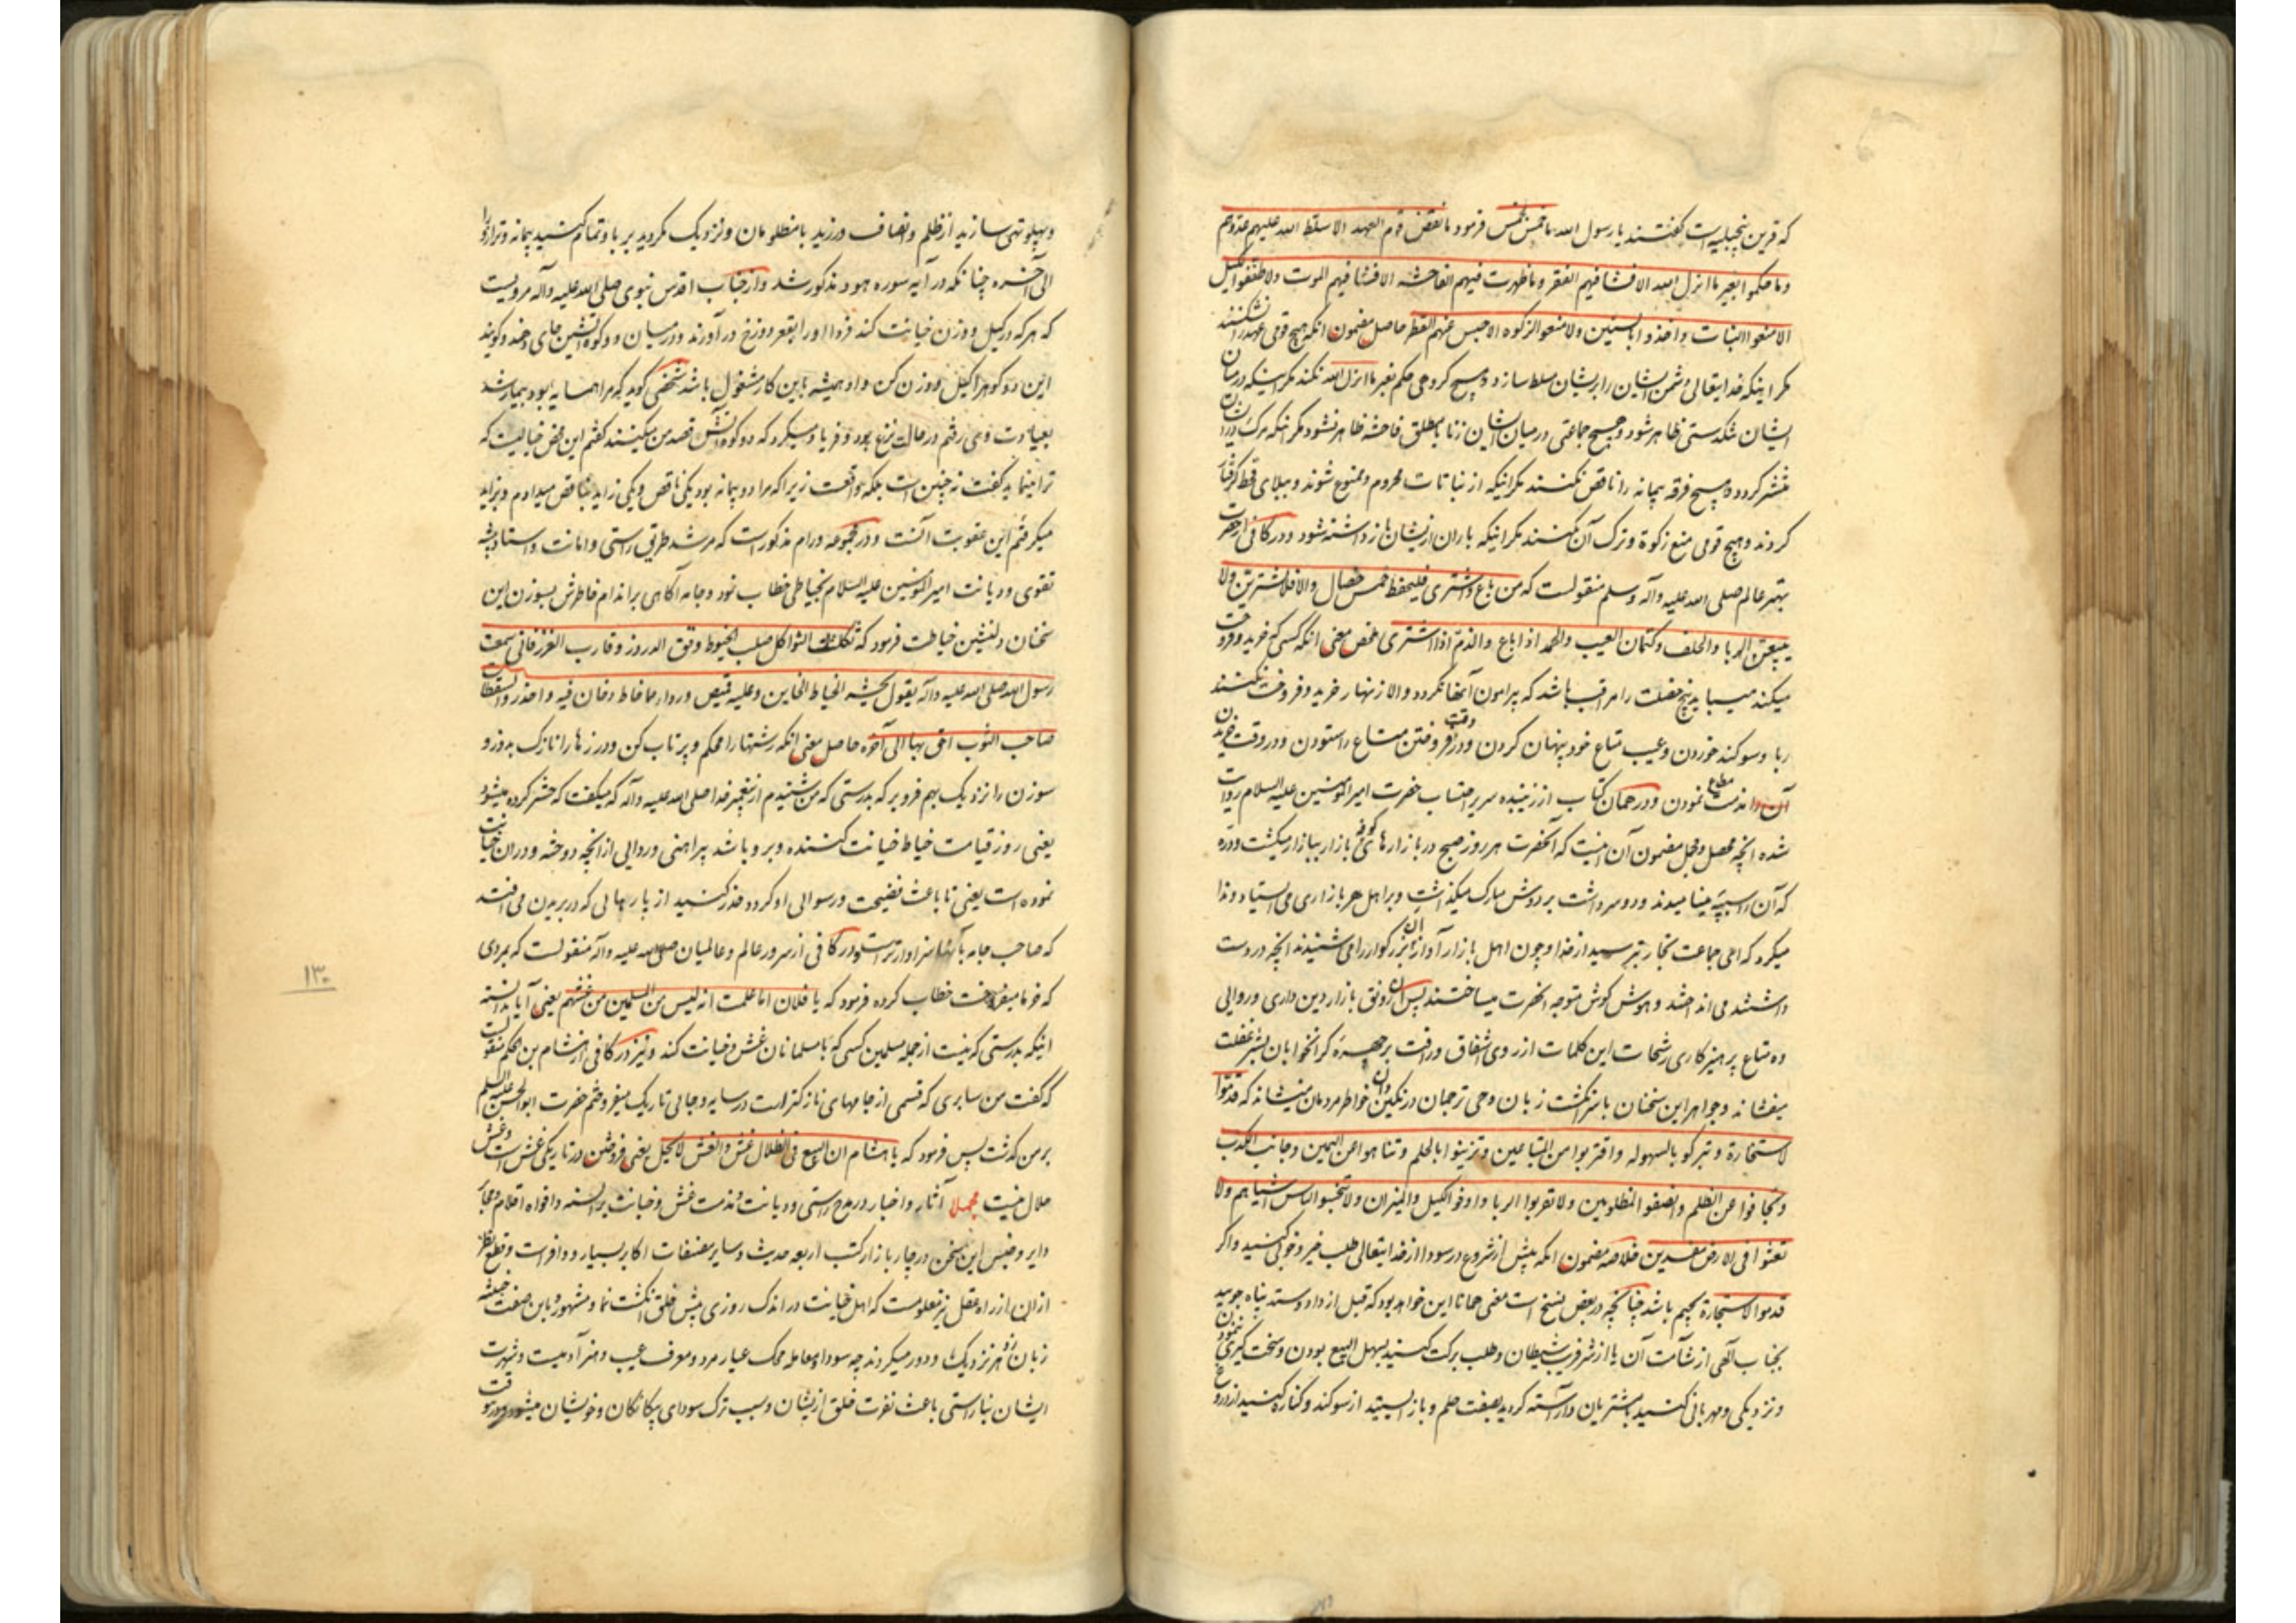 که قرین پنجیله است گفتند یا رسول الله ما خمس بخمس فرمود ما نقض قوم العهد الا سلط الله علیهم عدوهم
وما حکموا بغیر ما انزل الله الا فشا فیهم الفقر وما ظهرت فیهم الفاحشه الا فشا فیهم الموت ولا طففوا الکیل
الا منعوا النبات واخذوا بالسنین ولا منعوا الزکوه الا حبس عنهم القطر حاصل مضمون انکه هیچ قومی عهد را نشکنند
مکر اینکه خدایتعالی دشمن ایشان را برایشان مسلط سازد وهیچ کروهی حکم بغیر ما انزل الله نکنند مکر اینکه درمیان
ایشان تنکدستی ظاهر شود وهیچ جماعتی درمیان ایشان زنا یا مطلق فاحشه ظاهر نشود مکر انکه مرک درایشان
منتشر کردد وهیچ فرقه پیمانه را ناقص نکنند مکر اینکه از نباتات محروم وممنوع شوند وببلای قحط کرفتار
کردند وهیچ قومی منع زکوة وترک آن نکنند مکر اینکه باران ازیشان باز داشته شود ودر کافی ازحضرت
مهتر عالم صلی الله علیه وآله وسلم منقولست که من باع واشتری فلیحفظ خمس خصال والا فلا یشترین ولا
یبیعن الربا والحلف وکتمان العیب والحمد اذا باع والذم اذا اشتری ملخص معنی انکه کسی که خرید وفروخت
میکند میباید پنج خصلت را مراقب باشد که پیرامون آنها نکردد والا زنهار خرید وفروخت نکنند
ربا وسوکند خوردن وعیب متاع خود پنهان کردن ودر وقت فروختن متاع را ستودن ودر وقت خریدن
آن متاع را مذمت نمودن ودر همان کتاب از زیبنده سریر احتساب حضرت امیرالمومنین علیه السلام روایت
شده انچه محصل ومجمل مضمون آن اینست که آنحضرت هر روز صبح در بازارهای کوفه بازار ببازار میکشت ودره
که آن را سبیبه مینامیدند ودو سر داشت بر دوش مبارک میکذاشت وبر اهل هر بازاری می ایستاد وندا
میکرد که ای جماعت تجار بترسید از خدا وچون اهل بازار آواز آن بزرکوار را می شنیدند انچه در دست
داشتند می انداختند وهوش کوش متوجه انحضرت میساختند پس آن رونق بازار دین داری وروائی
ده متاع پرهیزکاری رشحات این کلمات از روی اشفاق ورافت بر چهره کرانخوابان بستر غفلت
میفشاند وجواهر این سخنان باسر انکشت زبان وحی ترجمان در نکین دان خواطر مردمان مینشاند که قدموا
الاستخارة وتبرکوا بالسهوله واقتربوا من المتبایعین وتزینوا بالحلم وتناهوا عن الیمین وجانبوا الکذب
وتجافوا عن الظلم وانصفوا المظلومین ولا تقربوا الربا واوفوا الکیل والمیزان ولا تبخسوا الناس اشیاءهم ولا
تعثوا فی الارض مفسدین خلاصه مضمون انکه پیش از شروع در سودا از خدایتعالی طلب خیر وخوبی کنید واکر
قدموا الاستجارة بجیم باشد چنانکچه در بعض نسخ است معنی همانا این خواهد بود که قبل از داد وستد پناه جویید
بجناب الهی از شآمت آن یا از شر فریب شیطان وطلب برکت کنید بسهل البیع بودن وسخت کیری ننمودن
ونزدیکی ومهربانی کنید بامشتریان وآراسته کردید بصفت حلم وباز ایستید از سوکند وکناره کنید از دروغ
وپهلو تهی سازید از ظلم وانصاف ورزید با مظلومان ونزدیک مکردید بربا وتمام کنید پیمانه وترازو را
الی آخره چنانکه در آیه سوره هود مذکور شد واز جناب اقدس نبوی صلی الله علیه وآله مرویست
که هرکه در کیل ووزن خیانت کند فردا او را بقعر دوزخ درآورند ودر میان دو کوه آتشین جای دهند وکویند
این دو کوه را کیل ووزن کن واو همیشه باین کار مشغول باشد شخصی کوید که مرا همسایه بود بیمار شد
بعیادت وی رفتم در حالت نزع بود وفریاد میکرد که دو کوه آتش قصد من میکنند کفتم این محض خیالیست که
ترا مینماید کفت نه چنین است بلکه واقعست زیرا که مرا دو پیمانه بود یکی ناقص ویکی زاید بناقص میدادم وبزاید
میکرفتم این عقوبت آنست ودر مجموعه ورام مذکور است که مرشد طریق راستی وامانت واستاد پیشه
تقوی ودیانت امیرالمومنین علیه السلام بخیاطی خطاب نمود وجامه آکاهی بر اندام خاطرش بسوزن این
سخنان دلنشین خیاطت فرمود که ثکلتک الثواکل صلب الخیوط ودقق الدروز وقارب الغرز فانی سمعت
رسول الله صلی الله علیه وآله یقول یحشر الخیاط الخاین وعلیه قمیص ورداء مما خاط وخان فیه واحذروا السقطات
صاحب الثوب احق بها الی آخره حاصل معنی انکه رشتها را محکم وپرتاب کن ودرزها را نازک بدوز و
سوزن را نزدیک بهم فرو بر که بدرستی که من شنیدم از پیغمبر خدا صلی الله علیه وآله که میکفت که حشر کرده میشود
یعنی روز قیامت خیاط خیانت کننده وبر او باشد پیراهنی وردایی از انچه دوخته ودران خیانت
نموده است یعنی تا باعث فضیحت ورسوائی او کردد حذر کنید از پارهائی که در بریدن می افتد
که صاحب جامه بآنها سزاوارتر است ودر کافی از سرور عالم وعالمیان صلی الله علیه وآله منقولست که بمردی
که خرما میفروخت خطاب کرده فرمود که یا فلان اما علمت انه لیس من المسلمین من غشهم یعنی آیا ندانسته
اینکه بدرستی که نیست از جمله مسلمین کسی که با مسلمانان غش وخیانت کند ونیز در کافی از هشام بن الحکم منقولست
که کفت من سابری که قسمی از جامهای نازکتر است در سایه وجائی تاریک میفروختم حضرت ابوالحسن علیه السلم
بر من کذشت پس فرمود که یا هشام ان البیع فی الظلال غش والغش لا یحل یعنی فروختن در تاریکی غش است وغش
حلال نیست مجملا آثار واخبار در مدح راستی ودیانت ومذمت غش وخیانت بر السنه وافواه اقلام ومحابر
دایر وجنس این سخن در چار بازار کتب اربعه حدیث وسایر مصنفات اکابر بسیار ووافر است وقطع نظر
ازاین از راه عقل نیز معلومست که اهل خیانت در اندک روزی پیش خلق انکشت نما ومشهور وباین صفت خبیثه
زبان زد هر نزدیک ودور میکردند چه سودا ومعامله محک عیار مرد ومعرف عیب وهنر آدمیست وشهرت
ایشان بناراستی باعث نفرت خلق ازیشان وسبب ترک سودای بیکانکان وخویشان میشود
۱۳۰